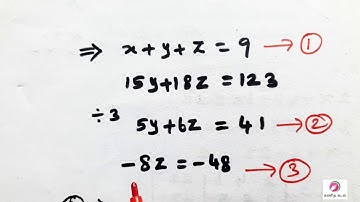 ⇒ x+y+z = 9 → ①
15y+18z = 123
÷3 5y+6z = 41 → ②
-8z = -48 → ③